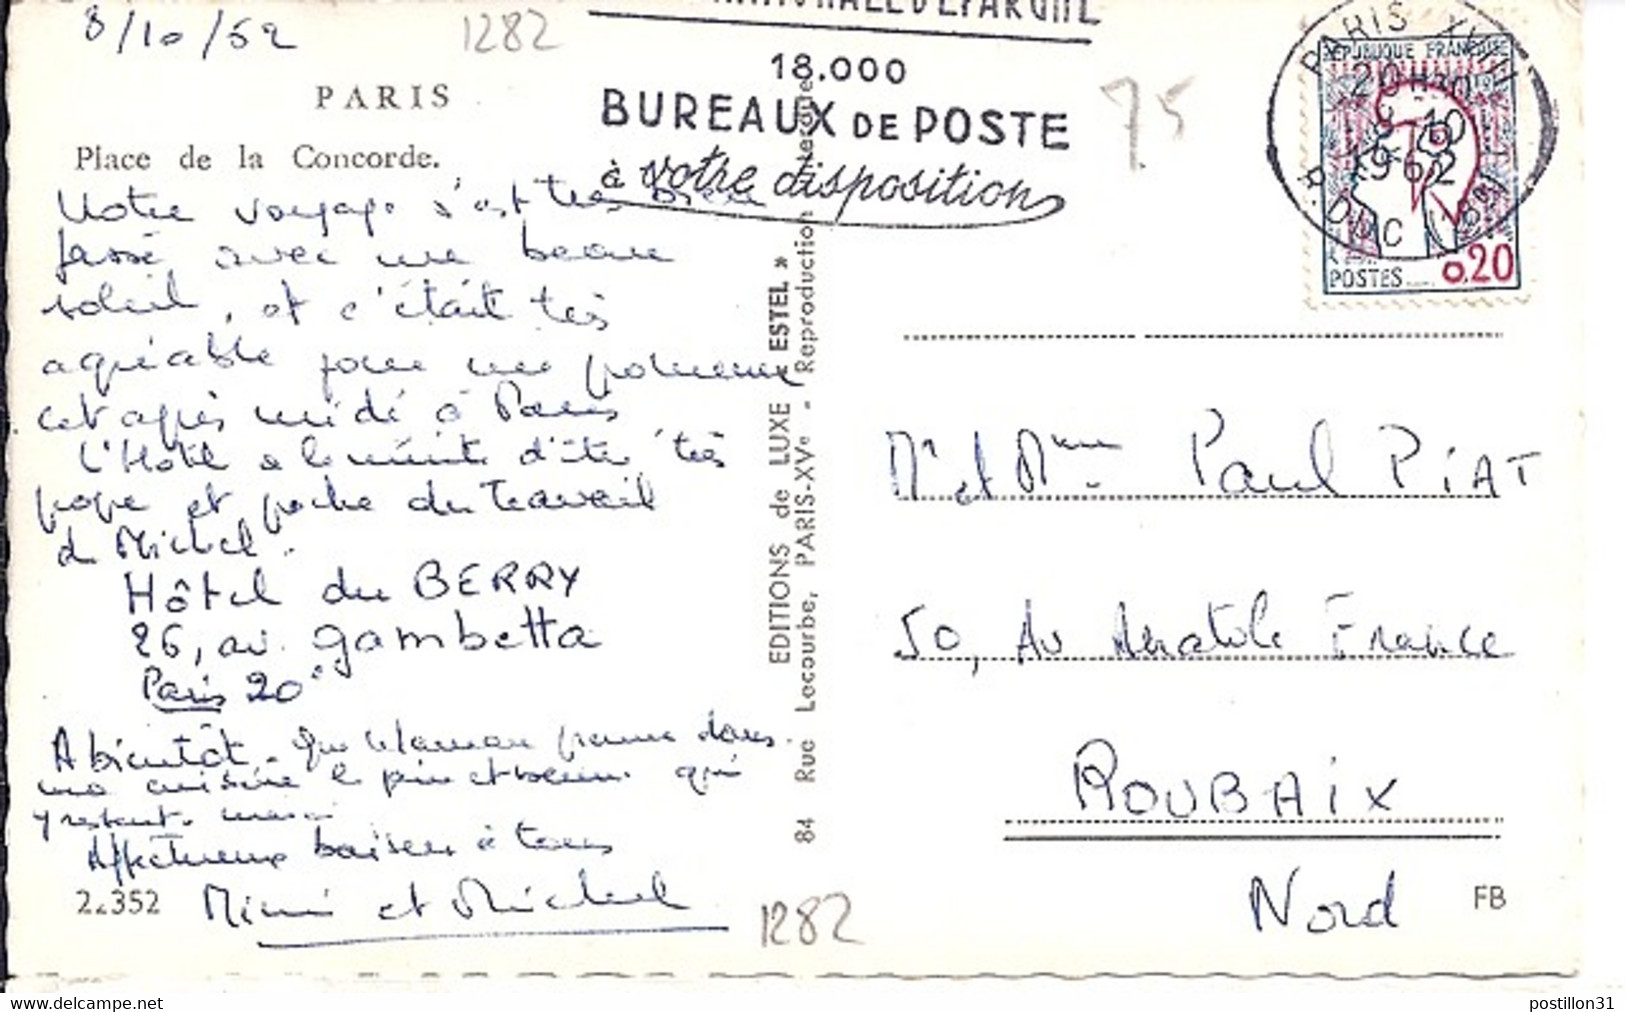 8/10/62
1282
NATIONALE D'EPARGNE
18.000
BUREAUX DE POSTE
à votre disposition
75
PARIS XVII
20H30
9-10
1962
R. DUC (18e)
REPUBLIQUE FRANÇAISE
POSTES
0.20
PARIS
Place de la Concorde.
Notre voyage s'est très bien
passé avec un beau
soleil, et c'était très
agréable pour une promenade
cet après midi à Paris
L'Hôtel a le mérite d'être très
propre et proche du travail
de Michel.
Hôtel du BERRY
26, av. gambetta
Paris 20e
A bientôt. Que Maman prenne dans
ma cuisine le pain et beurre qui
y restent. merci
Affectueux baisers à tous
Mimi et Michel
22352
1282
EDITIONS de LUXE « ESTEL »
84 Rue Lecourbe, PARIS-XVe - Reproduction interdite
Mr et Mme Paul PiAT
50, Av Anatole France
ROUBAiX
Nord
FB
postillon31